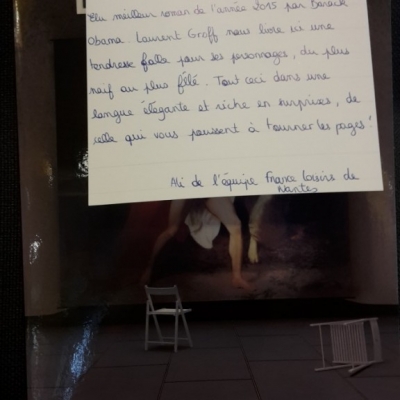 Elu meilleur roman de l'année 2015 par Barack
Obama. Laurent Groff nous livre ici une
tendresse folle pour ses personnages, du plus
naïf au plus fêlé. Tout ceci dans une
langue élégante et riche en surprises, de
celle qui vous poussent à tourner les pages !
de l'équipe France Loisirs de
Nantes